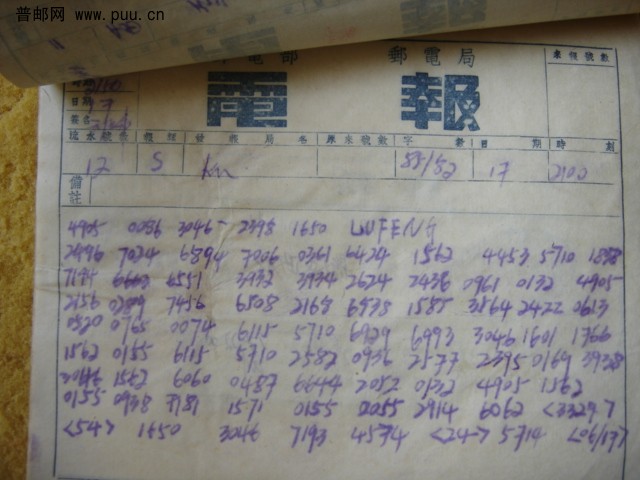 普邮网 www.puu.cn
郵電局
來報號數
電報
日期 17
簽名
流水號數 報類 發報局名 原來號數 字數 日期 時刻
12 S 53/52 17 2100
備註
4905 0086 3046 2398 1650 LUFENG
2496 7024 6894 7006 0361 6424 1562 4453 5710 1838
6551 3932 3934 2624 2436 0961 0132 4905
2156 7456 6508 2168 6935 1585 3864 2422 0613
0520 0765 0074 6115 5710 6929 6993 3046 1601 1766
1562 0155 6115 5710 2582 0936 2577 2395 0169 3938
3046 1562 6060 0487 6644 2052 0132 4905 1562
0155 0938 7181 1571 0155 2055 2914 6062 <3329>
<54> 1650 3046 7193 4574 <24> 5714 <06/17>